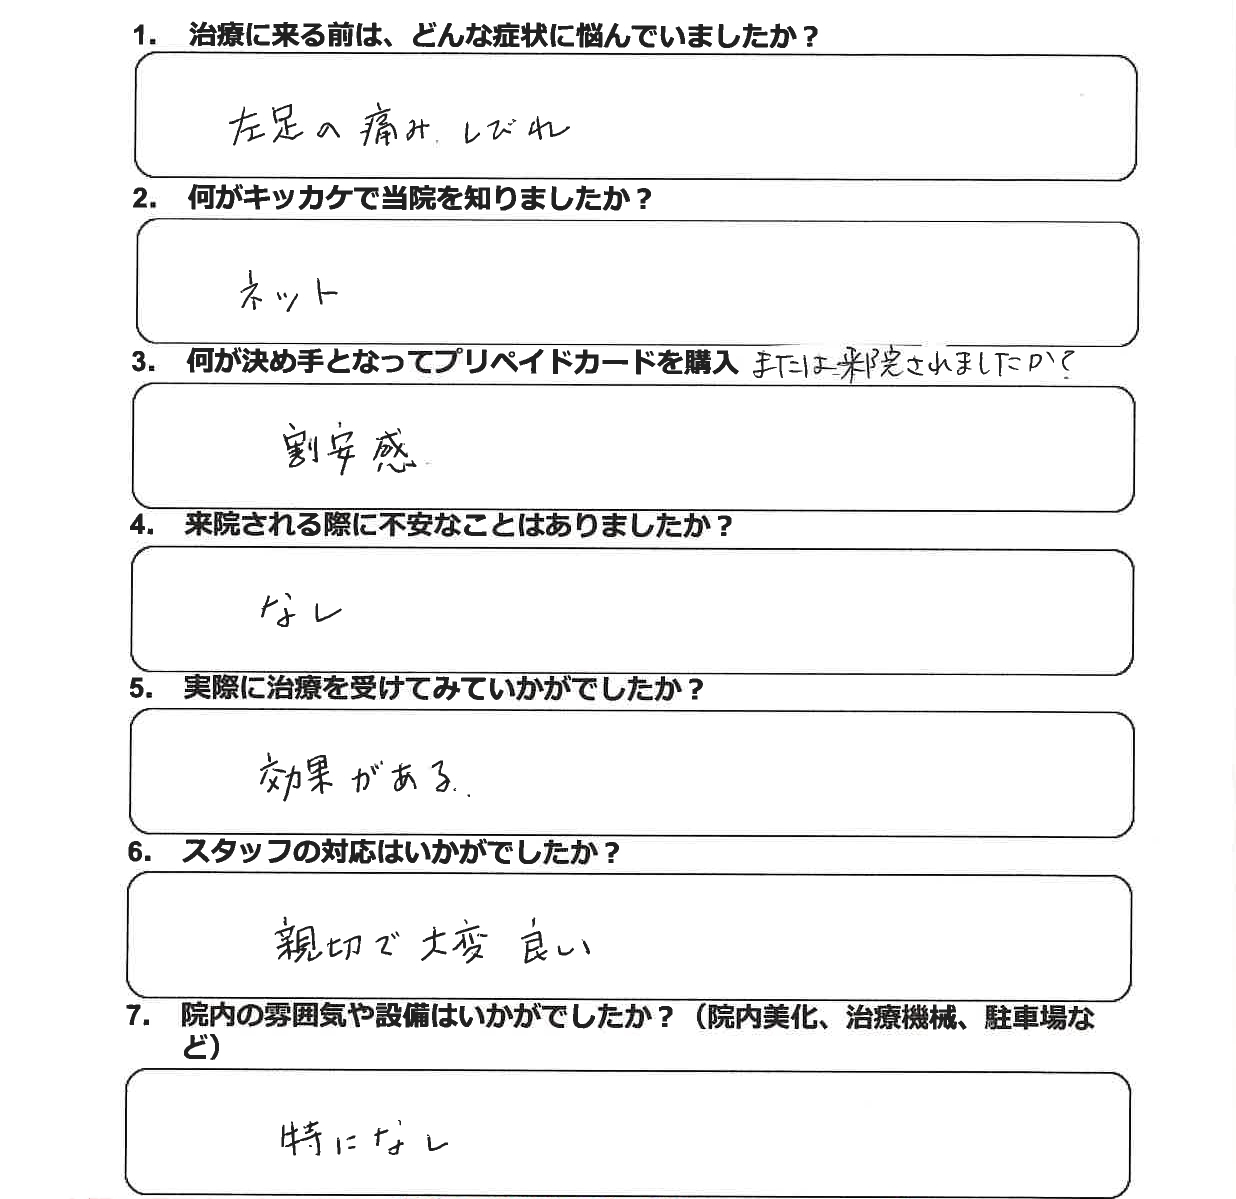 1. 治療に来る前は、どんな症状に悩んでいましたか？
左足の痛み、しびれ
2. 何がキッカケで当院を知りましたか？
ネット
3. 何が決め手となってプリペイドカードを購入 または来院されましたか？
割安感
4. 来院される際に不安なことはありましたか？
なし
5. 実際に治療を受けてみていかがでしたか？
効果がある。
6. スタッフの対応はいかがでしたか？
親切で大変良い
7. 院内の雰囲気や設備はいかがでしたか？（院内美化、治療機械、駐車場な
ど）
特になし